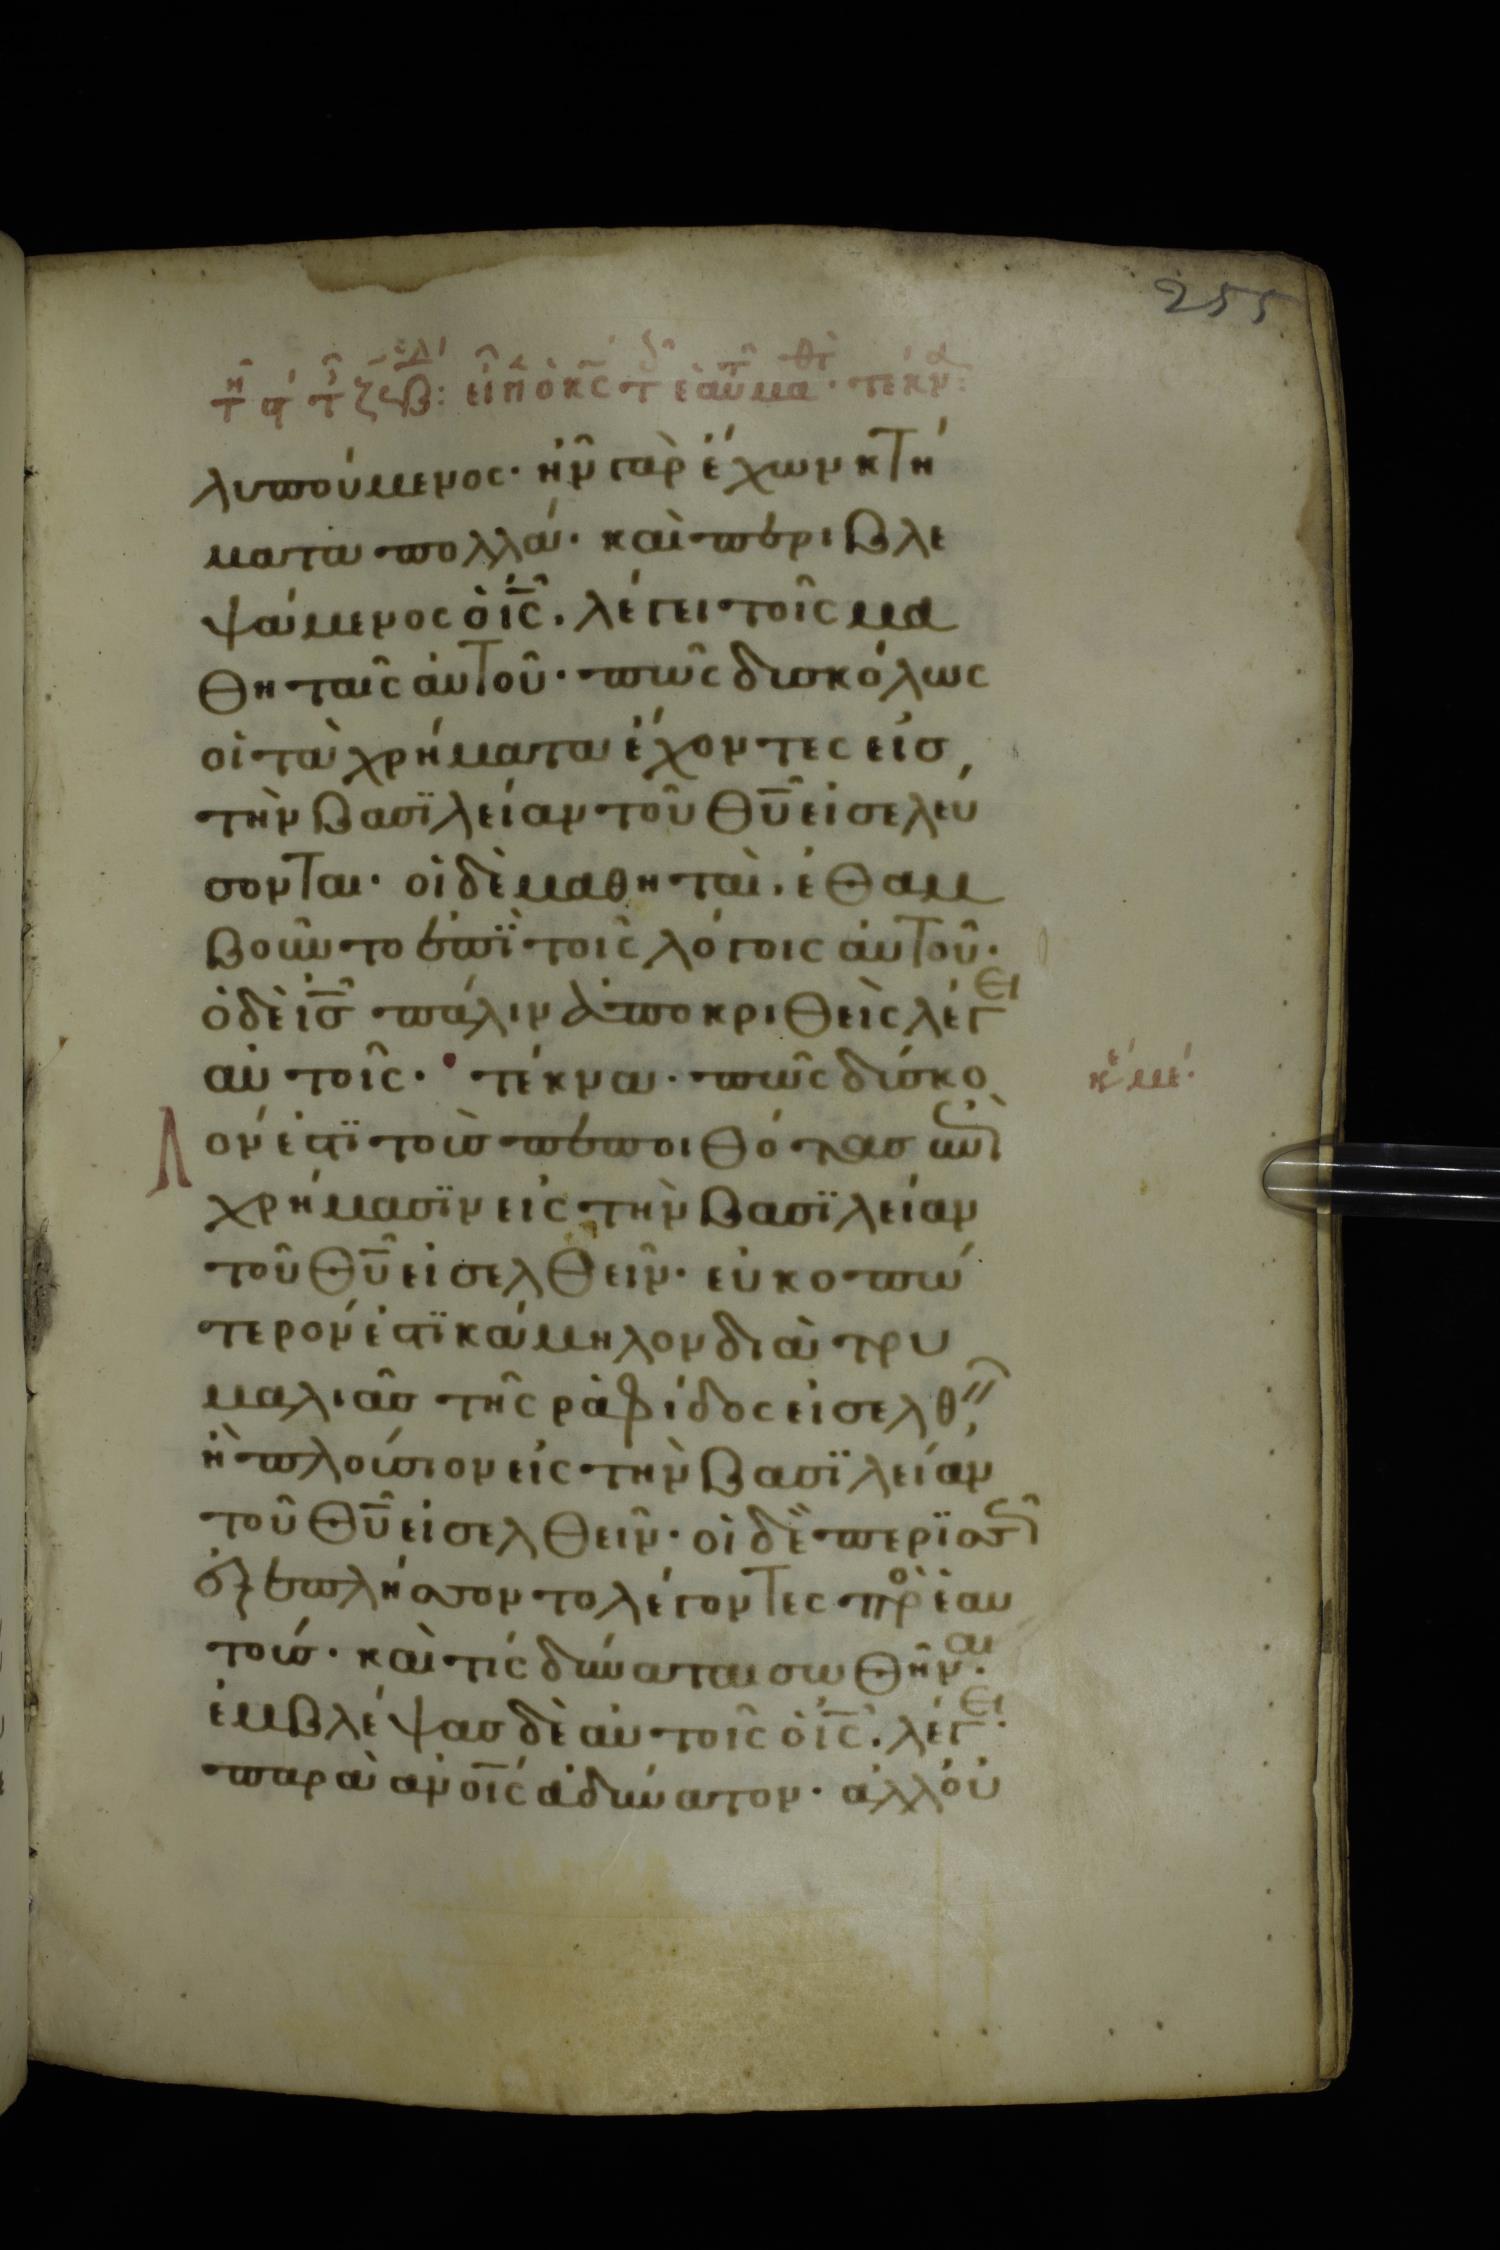 255
λυπούμενος· ἦν γὰρ ἔχων κτή
ματα πολλά· καὶ περιβλε
ψάμενος ὁ ις̅. λέγει τοῖς μα
θηταῖς αὐτοῦ· πῶς δισκόλως
οἱ τὰ χρήματα ἔχοντες εἰσ
τὴν βασϊλείαν τοῦ θυ̅ εἰσελεύ
σονται· οἱ δὲ μαθηταὶ. ἐθαμ
βοῦντο ἐπϊ τοῖς λόγοις αὐτοῦ·
ὁ δὲ ισ̅ πάλιν ἀποκριθεὶς λέγει
αὐτοῖς· τέκνα· πῶς δίσκο
λον ἐστϊ τοὺσ πεποιθότασ
χρήμασϊν εἰς τὴν βασϊλείαν
τοῦ θυ̅ εἰσελθεῖν· εὐκοπώ
τερον ἐστϊ κάμηλον διὰ τρυ
μαλιᾶσ τῆς ραφίδος εἰσελθ
ἢ πλούσιον εἰς τὴν βασϊλείαν
τοῦ θυ̅ εἰσελθεῖν· οἱ δὲ περϊσσῶσ
ἐξεπλήσσοντο λέγοντες πρὸ ἑαυ
τούσ· καὶ τίς δύναται σωθῆναι·
ἐμβλέψασ δὲ αὐτοῖς ὁ ις̅. λέγει·
παρὰ ανοις̅ ἀδύνατον· ἀλλ οὐ